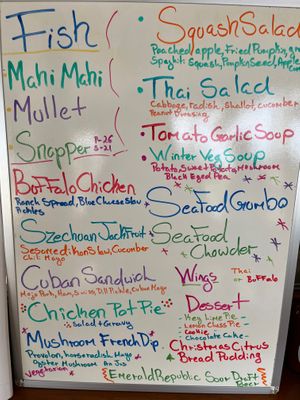 Fish
Mahi Mahi
Mullet
Snapper P-26
S-21
Buffalo Chicken
Ranch Spread, Blue Cheese Slaw
Pickles
Szechuan Jackfruit
Sesame dikon Slaw, Cucumber
Chili Mayo
Cuban Sandwich
Mojo Pork, Ham, Swiss, Dill Pickle, Cuban Mayo
Chicken Pot Pie
Salad + Gravy
Mushroom French Dip
Provolon, horseradish Mayo
Oyster Mushroom Au Jus
vegetarian
• Squash Salad
Poached apple, Fried Pumpkin,
Spaghti Squash, Pumpkin Seed, Apple
• Thai Salad
Cabbage, radish, Shallot, cucumber
Peanut Dressing
• Tomato Garlic Soup
• Winter Veg Soup
Potato, Sweet Potato, Mushroom
Black Eyed Pea
Seafood Gumbo
Seafood
Chowder
Wings Thai
or Buffalo
Dessert
Key Lime Pie
Lemon Chess Pie
Cookie
Chocolate Cake
Christmas Citrus
Bread Pudding
Emerald Republic Sour Draft
Beer